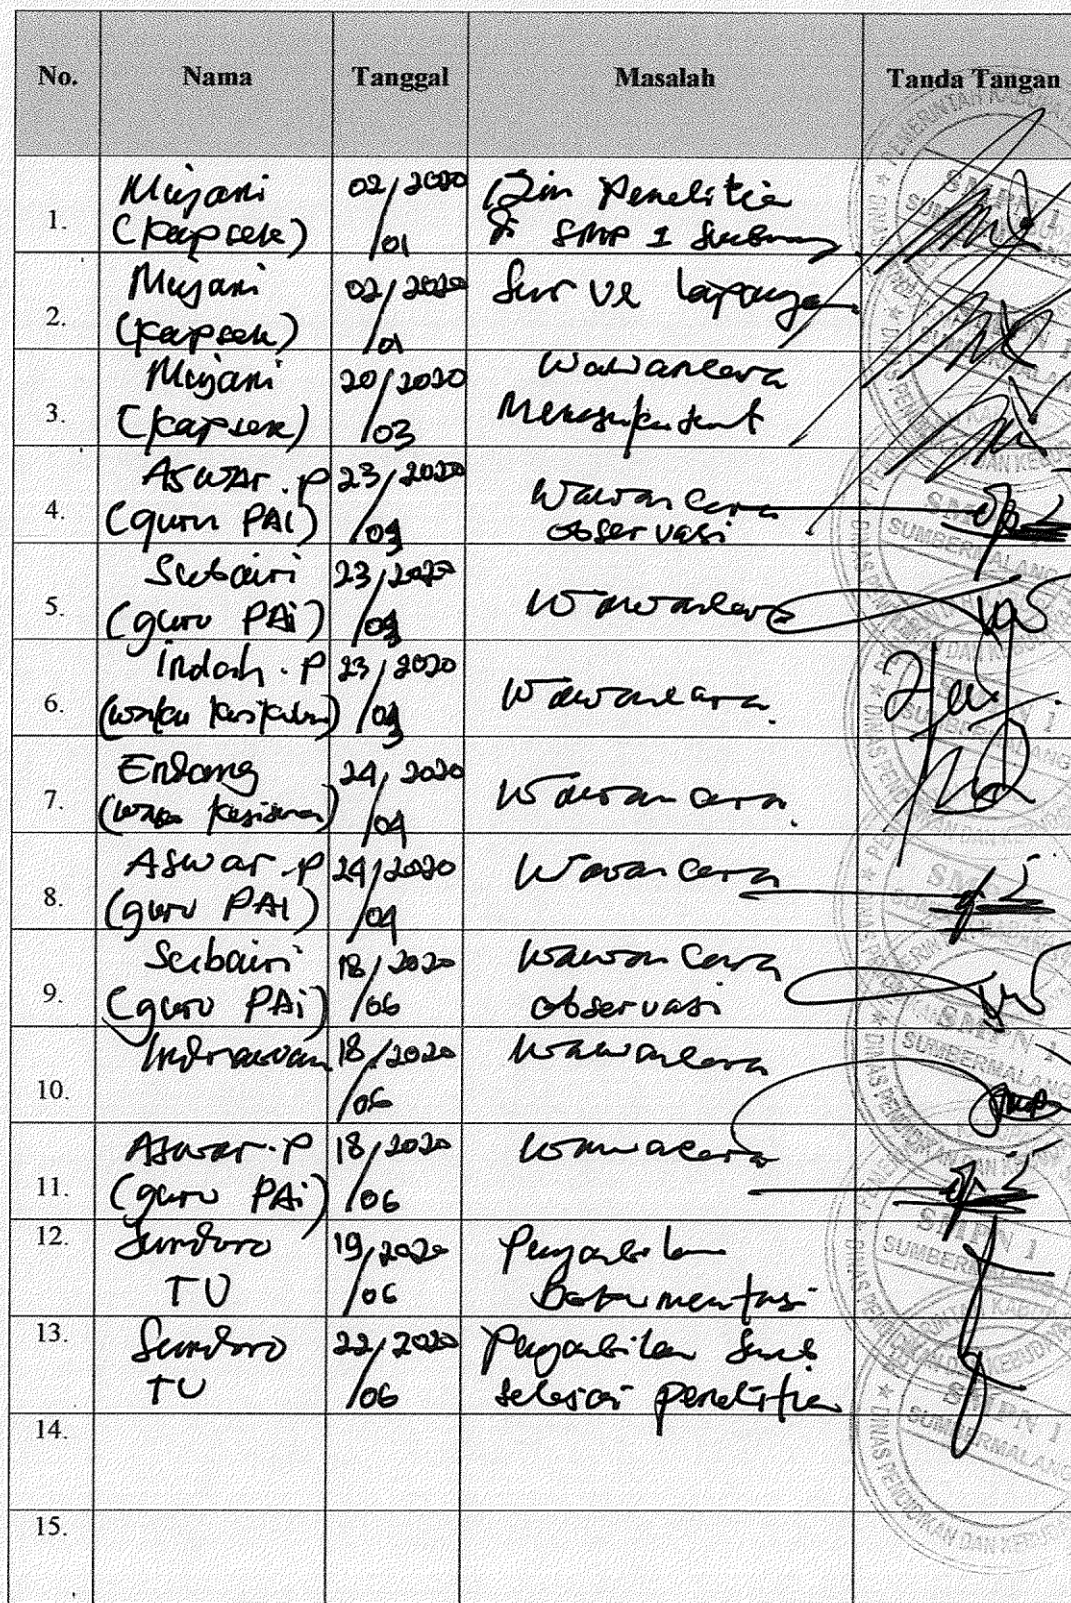 No. Nama Tanggal Masalah Tanda Tangan
1. Mujani (Kapsek) 02/01 2020 Izin Penelitia di SMP 1
2. Mujani (Kapsek) 02/01 2020 Surve lapangan
3. Mujani (Kapsek) 20/03 2020 Wawancara
4. Aswar.P (guru PAI) 23/03 2020 Wawancara observasi
5. Subairi (guru PAi) 23/03 2020 Wawancara
6. Indah.P (waka kurikulum) 23/03 2020 Wawancara
7. Endang (waka kesiswaan) 24/04 2020 Wawancara
8. Aswar.P (guru PAI) 24/04 2020 Wawancara
9. Subairi (guru PAi) 18/06 2020 Wawancara observasi
10. Indrawan 18/06 2020 Wawancara
11. Aswar.P (guru PAi) 18/06 2020 Wawacara
12. Sundoro TU 19/06 2020
13. Sundoro TU 22/06 2020 selesai penelitian
14.
15.
SMPN 1
SUMBERMALANG